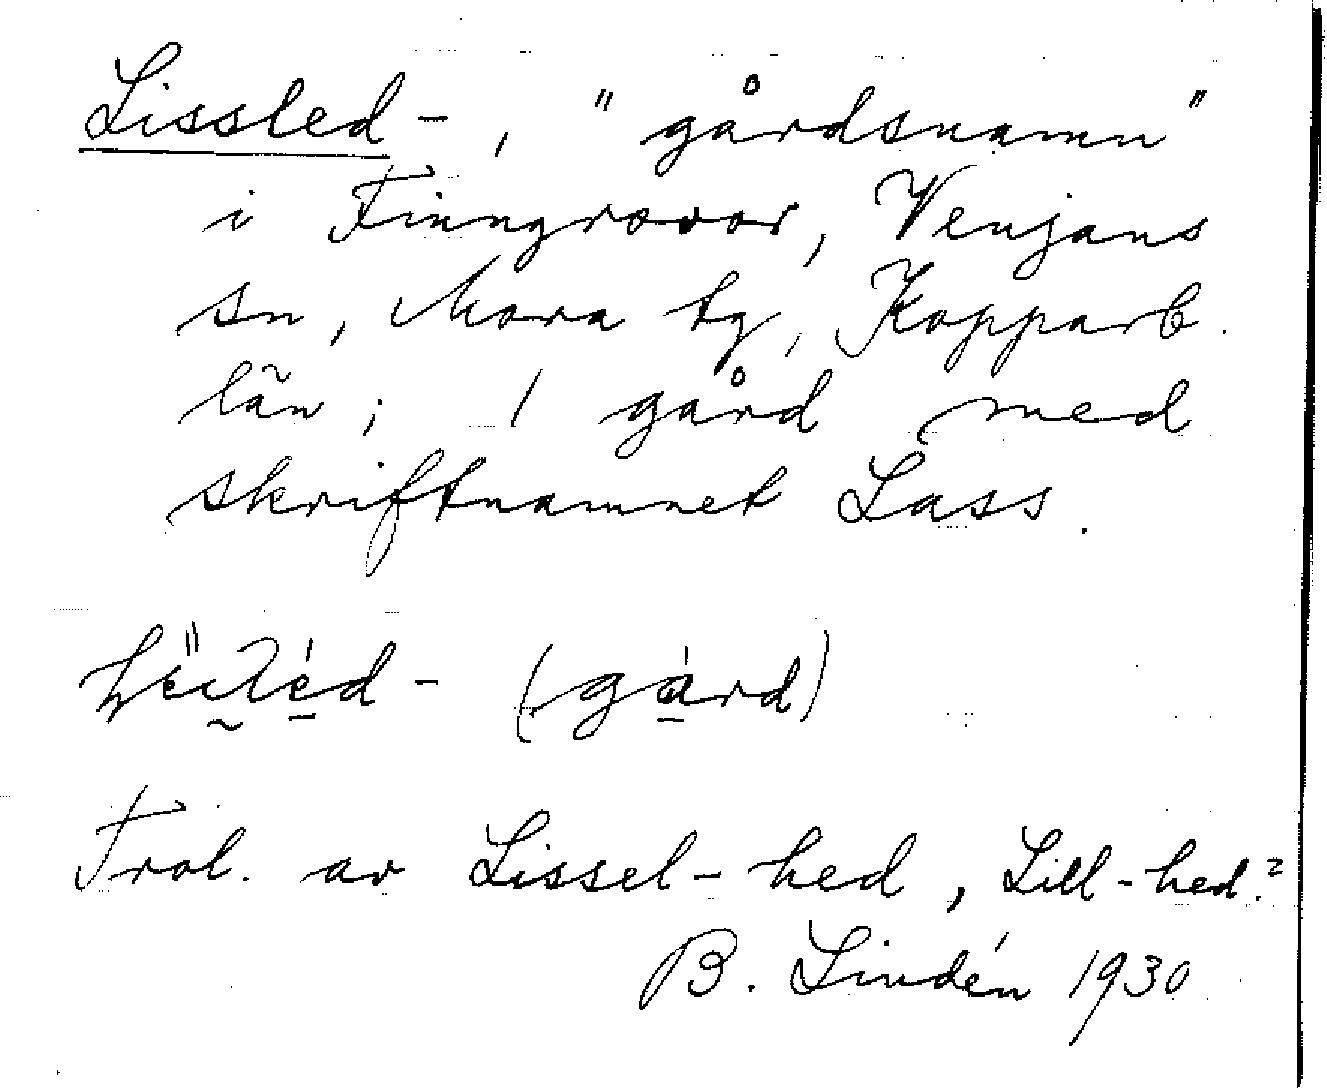 Lissled-, "gårdsnamn"
i Finngruvor, Venjans
sn, Mora tg, Kopparb.
län; 1 gård med
skriftnamnet Lass.
- (gård)
Trol. av Lissel-hed, Lill-hed?
B. Lindén 1930